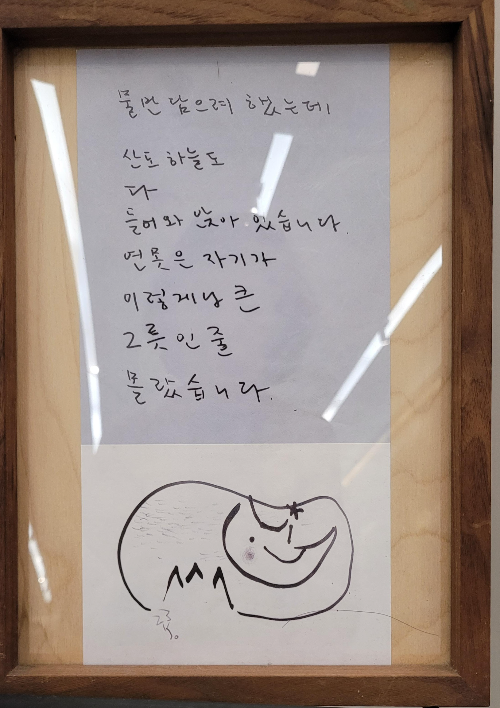 물만 담으려 했는데
산도 하늘도
다
들어와 앉아 있습니다.
연못은 자기가
이렇게나 큰
그릇인 줄
몰랐습니다.